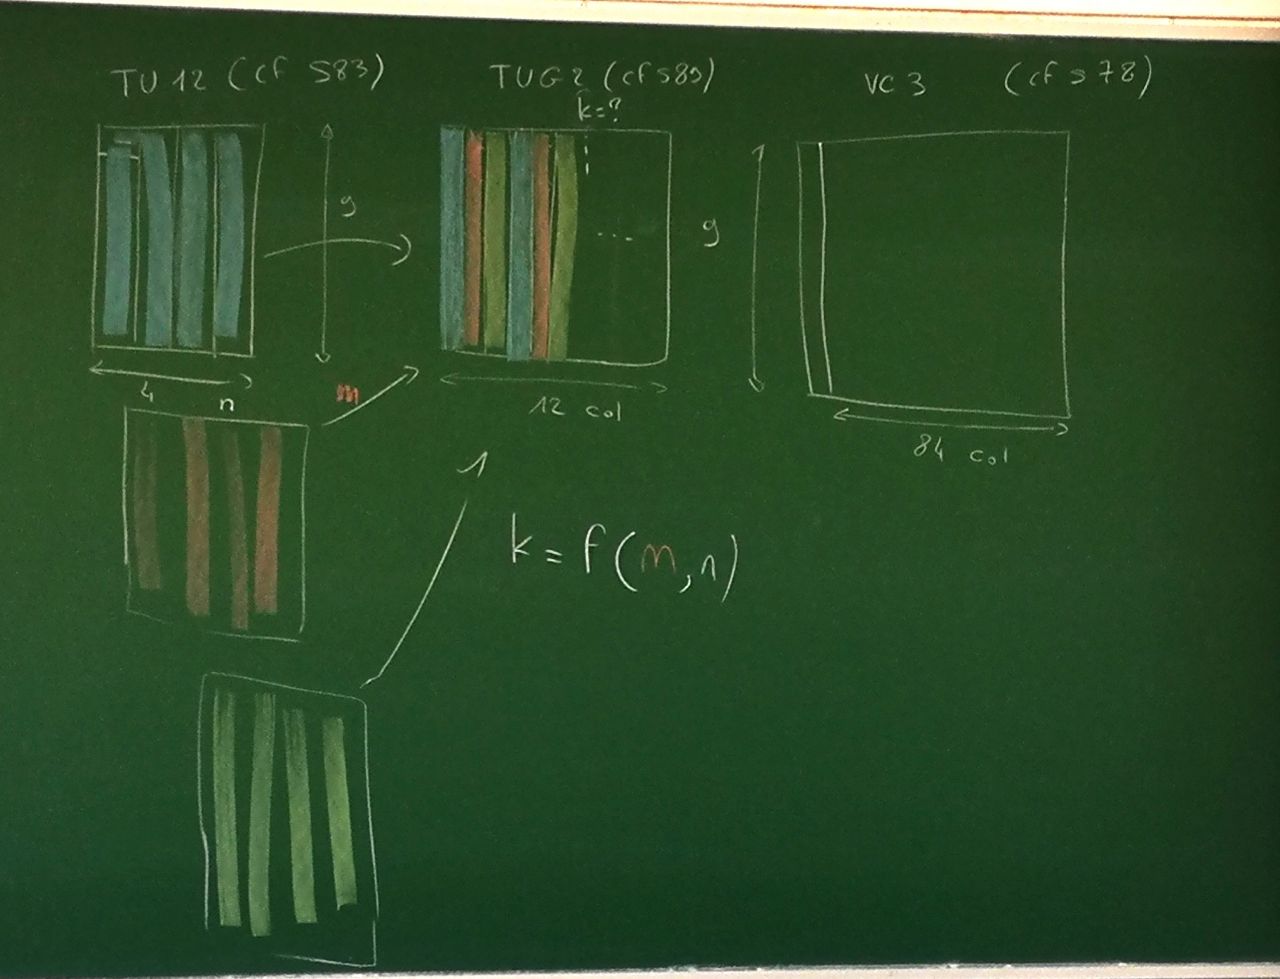 TU 12 (cf S83)
TUG2 (cf s89)
VC 3 (cf s 78)
k=?
9
...
9
4
n
m
12 col
84 col
k = f(m,n)